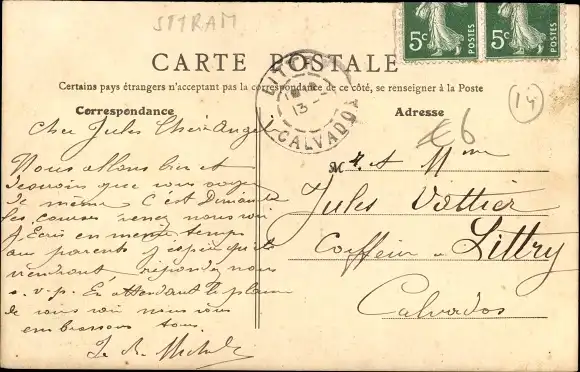 STTRAM
5c POSTES 5c POSTES
CARTE POSTALE
Certains pays étrangers n'acceptant pas la correspondance de ce côté, se renseigner à la Poste
Correspondance
Adresse
14
€6
CALVADOS
13
Cher Jules Chère Angèle
Nous allons bien et
que vous
de même C'est Dimanche
les courses venez nous voir
J'Ecris en même temps
au parents j'espère qu'il
viendront, répondez nous
s.v.p. En attendant le plaisir
de vous voir nous vous
embrassons tous.
Mr et Mme
Jules Vattier
Coiffeur a Littry
Calvados